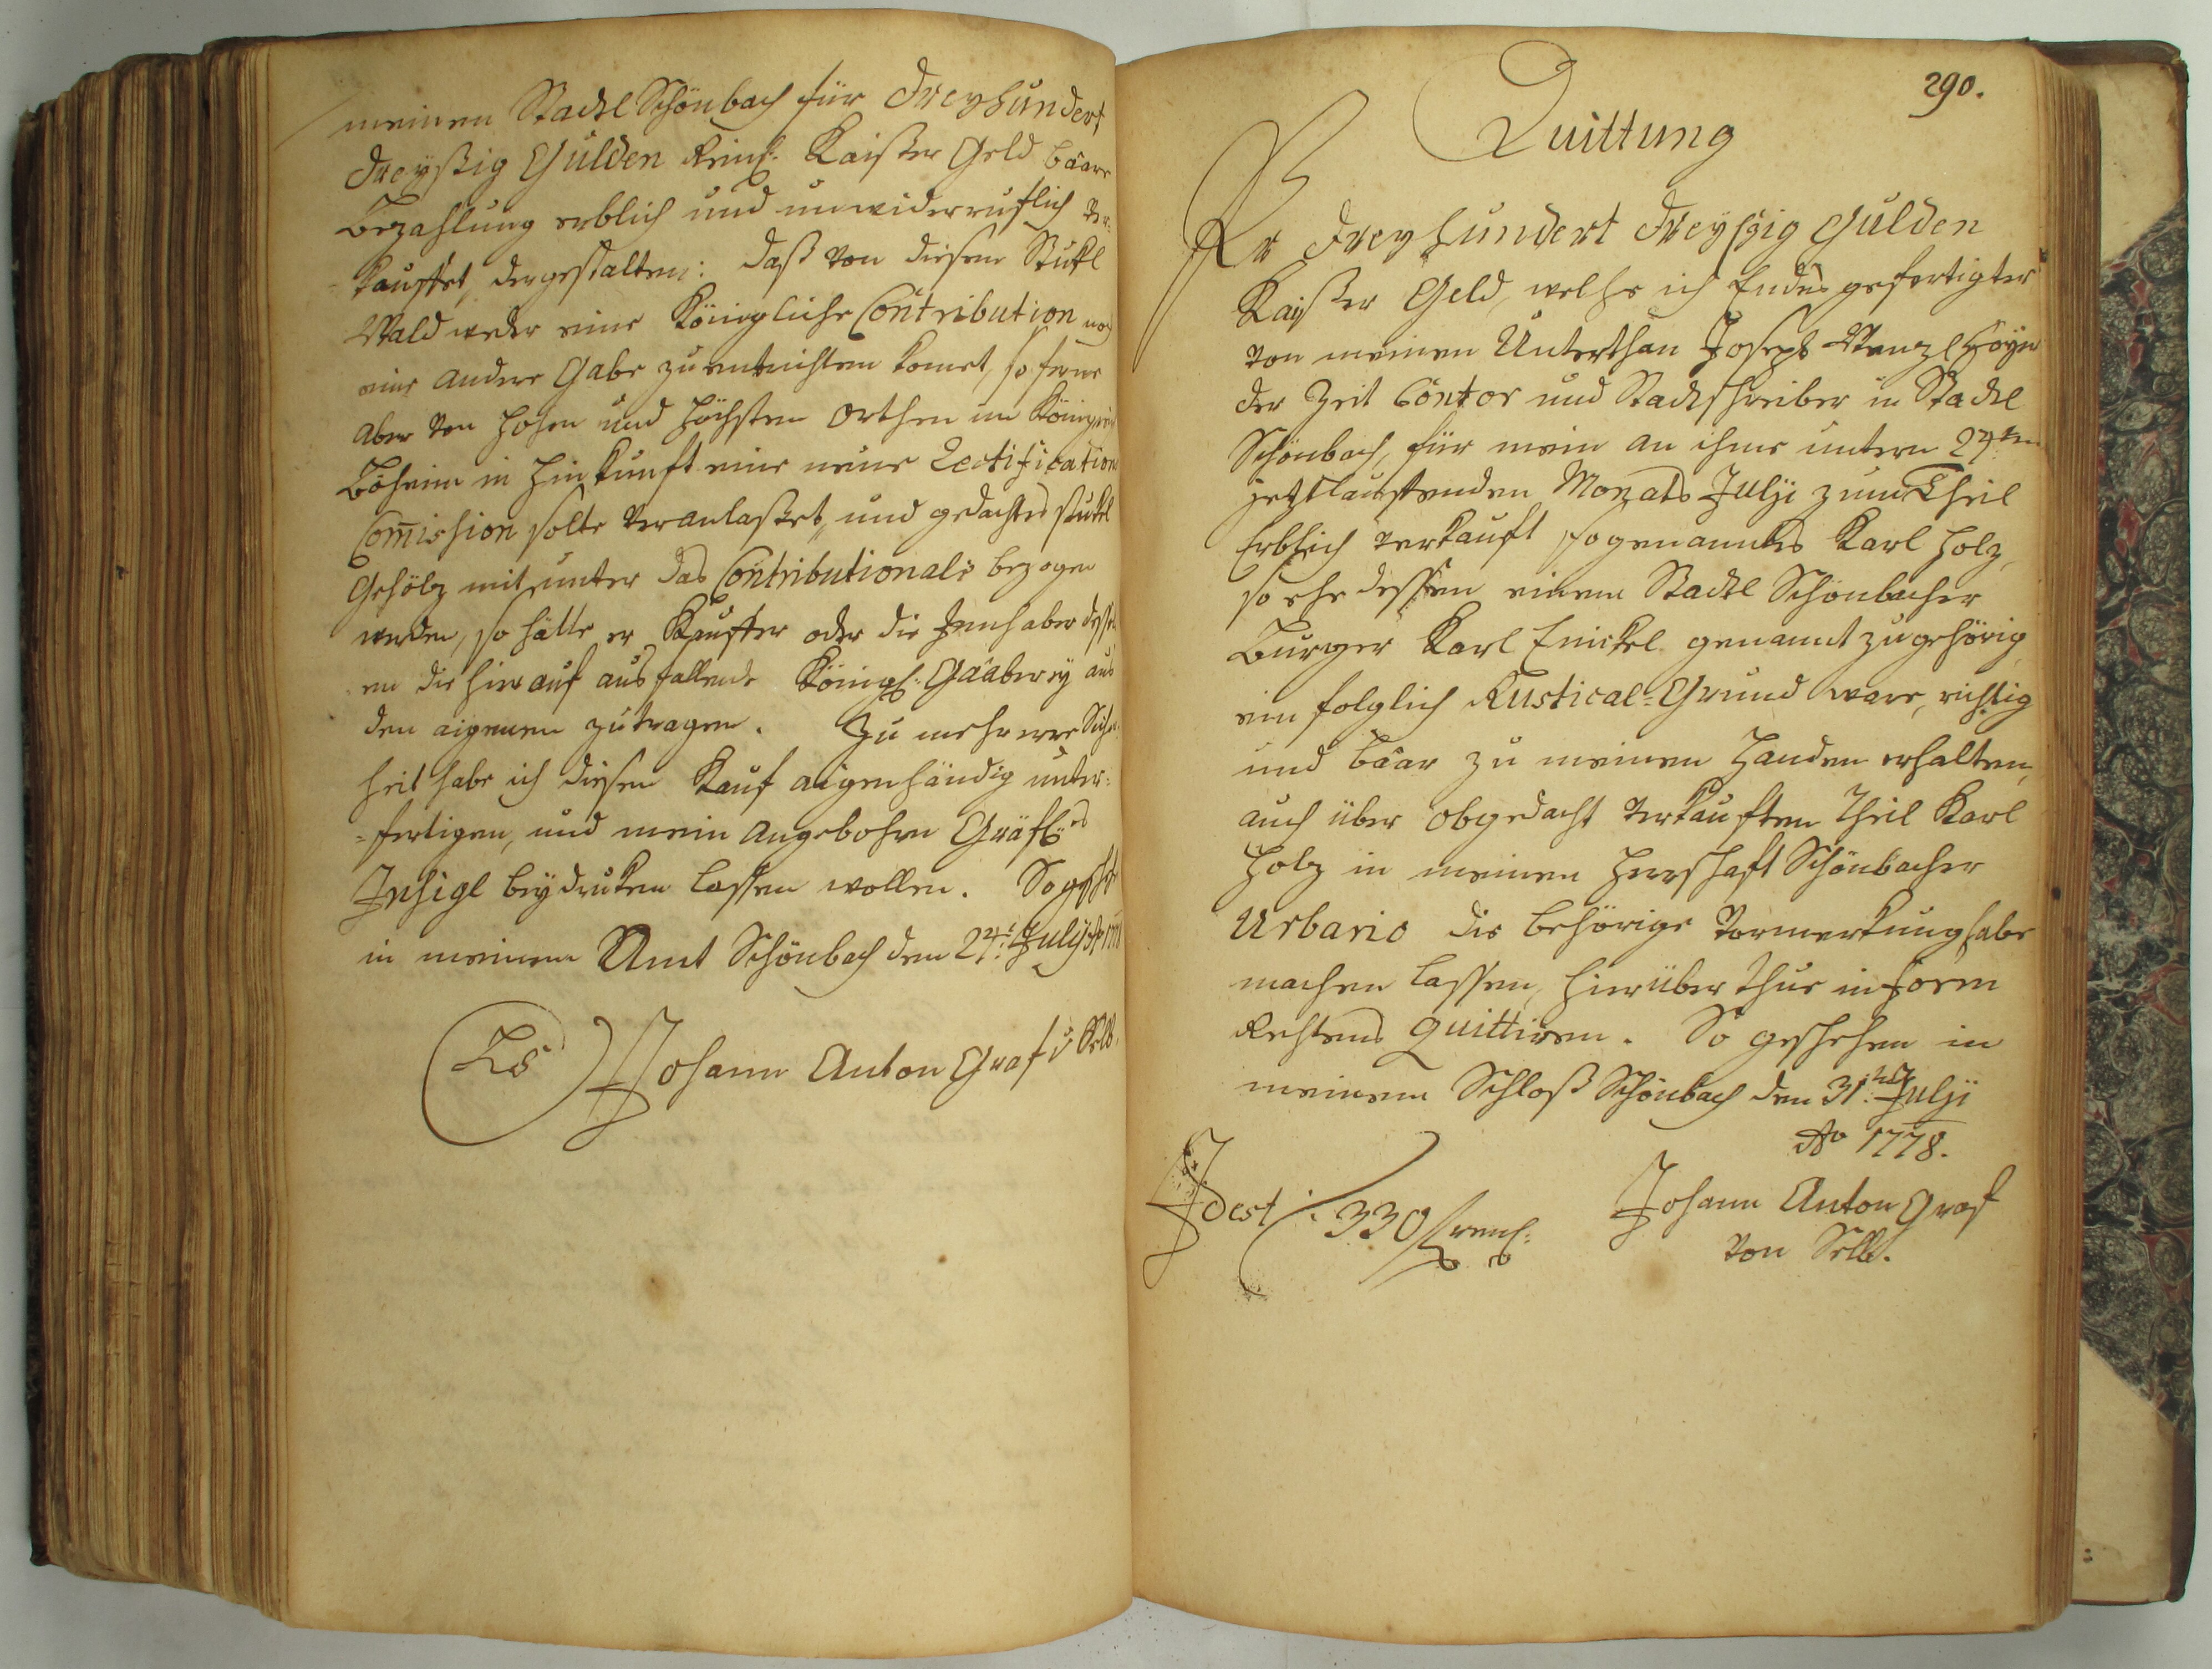 meinen Stadtl Schönbach für dreyhundert
dreyßig Gulden Reinl: Kaißer Geld bâare
Bezahlung erblich und unwiderruflich ver-
kauffet, dergestalten: daß von diesem Stükl
Wald weder eine Königliche Contribution noch
eine andere Gabe zu entrichten komet, so ferne
aber von hohen und höchsten orthen im Königreich
Böheim in Hinkunft eine neue Rectification
Com̄ission solte veranlasset, und gedachtes stükl
Gehölz mit unter das Contributionale bezogen
werden, so hätte er Kauffer oder die Innhaber dessel
en die hierauf ausfallende Königl: Gaaberey aus
den aigenen zu tragen. Zu mehrerer Sicher
heit habe ich diesen Kauf aigenhändig unter-
=fertigen, und mein angebohrn Gräfl:es
Insigl beydruken lassen wollen. So geschehen
in meinem Amt Schönbach den 24t July Ao
LS Johann Anton Graf v Selb.
290.
Quittung
Pr dreyhundert dreyßig Gulden
Kaißer Geld, welche ich Endes gefertigter
von meinen Unterthan Joseph Wenzl Höyer
der Zeit Cantor und Stadtschreiber in Stadtl
Schönbach, für mein an ihme untern 24ten
jetztlauffenden Monats Julji zum Theil
Erblich verkauft sogenanntes Karl Holz,
so ehe dessen einem Stadtl Schönbacher
Burger Karl Enickel genannt zugehörig
ein folglich Rustical-Grund ware, richtig
und bâar zu meinen Handen erhalten,
auch über obgedacht verkauften Theil Karl
Holz in meinen Herrschaft Schönbacher
Urbario die behörige Vormerkung habe
machen lassen, hierüber thue in Form
Rechtens quittiren. So geschehen in
meinem Schloß Schönbach den 31ten Julji
Ao 1778.
Idest: 330 f reinl:
Johann Anton Graf
von Selb.